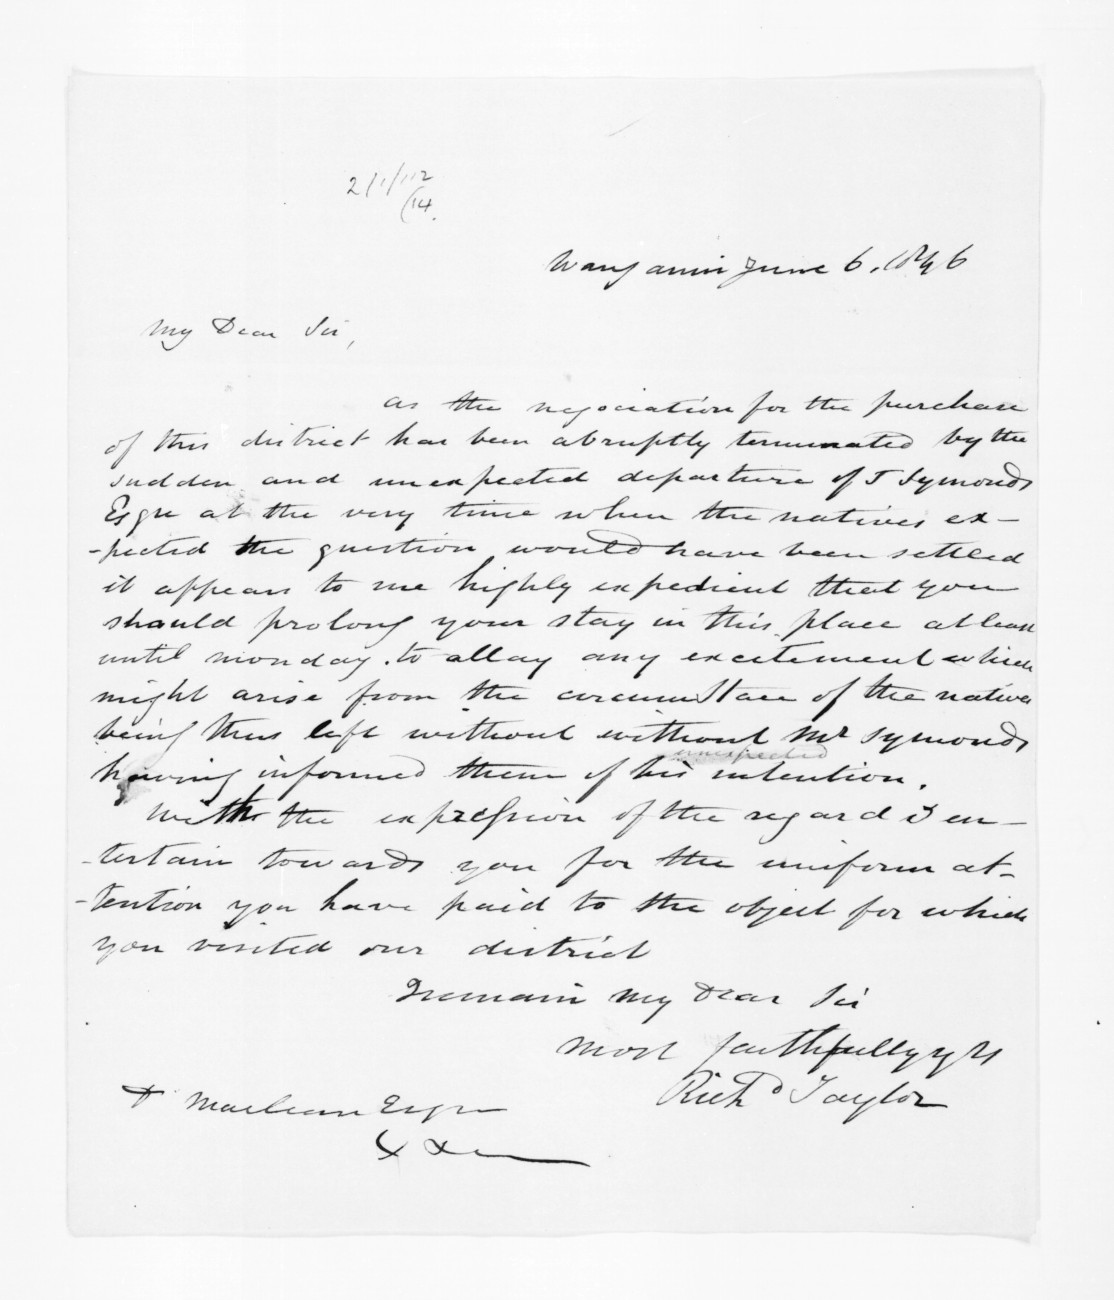 2/1/112
/14.
Wanganui June 6. 1846
My Dear Sir,
as the negociation for the purchase
of this district has been abruptly terminated by the
sudden and unexpected departure of J Symonds
Esqre at the very time when the natives ex-
-pected the question would have been settled
it appears to me highly expedient that you
should prolong your stay in this place at least
until monday. to allay any excitement which
might arise from the circumstance of the natives
being thus left without without Mr Symonds
unexpected
having informed them of his intention.
With the expression of the regard I en-
-tertain towards you for the uniform at-
-tention you have paid to the object for which
you visited our district
I remain My Dear Sir
most faithfully yrs
Richd Taylor
D Maclean Esqre